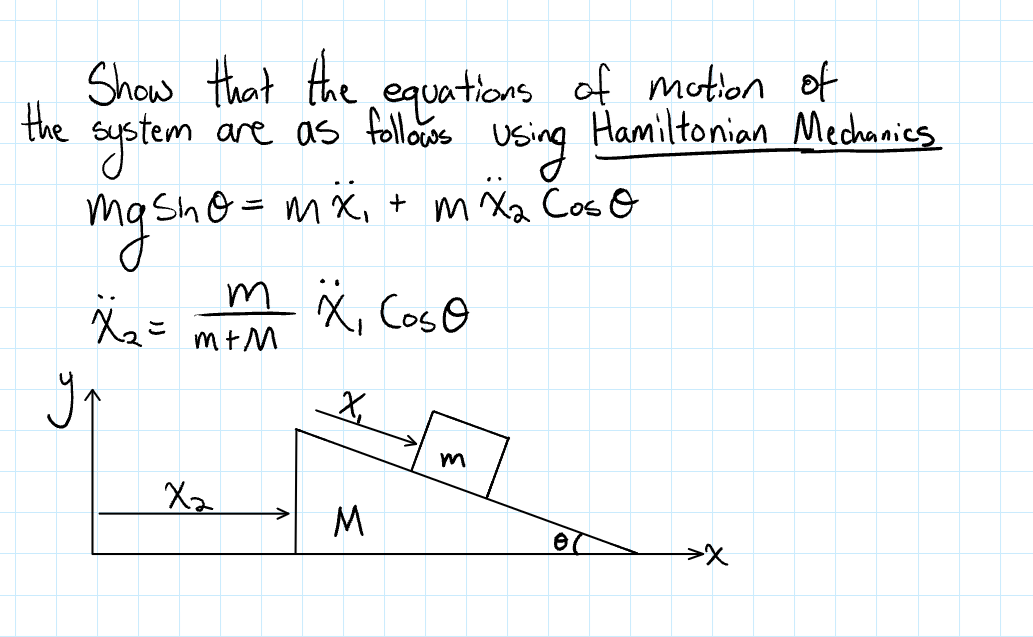 Show that the equations of motion of
the system are as follows using Hamiltonian Mechanics
mg Sin θ = m ẍ₁ + m ẍ₂ Cos θ
ẍ₂ = m/(m+M) ẍ₁ Cos θ
y
x₁
m
x₂
M
θ
x